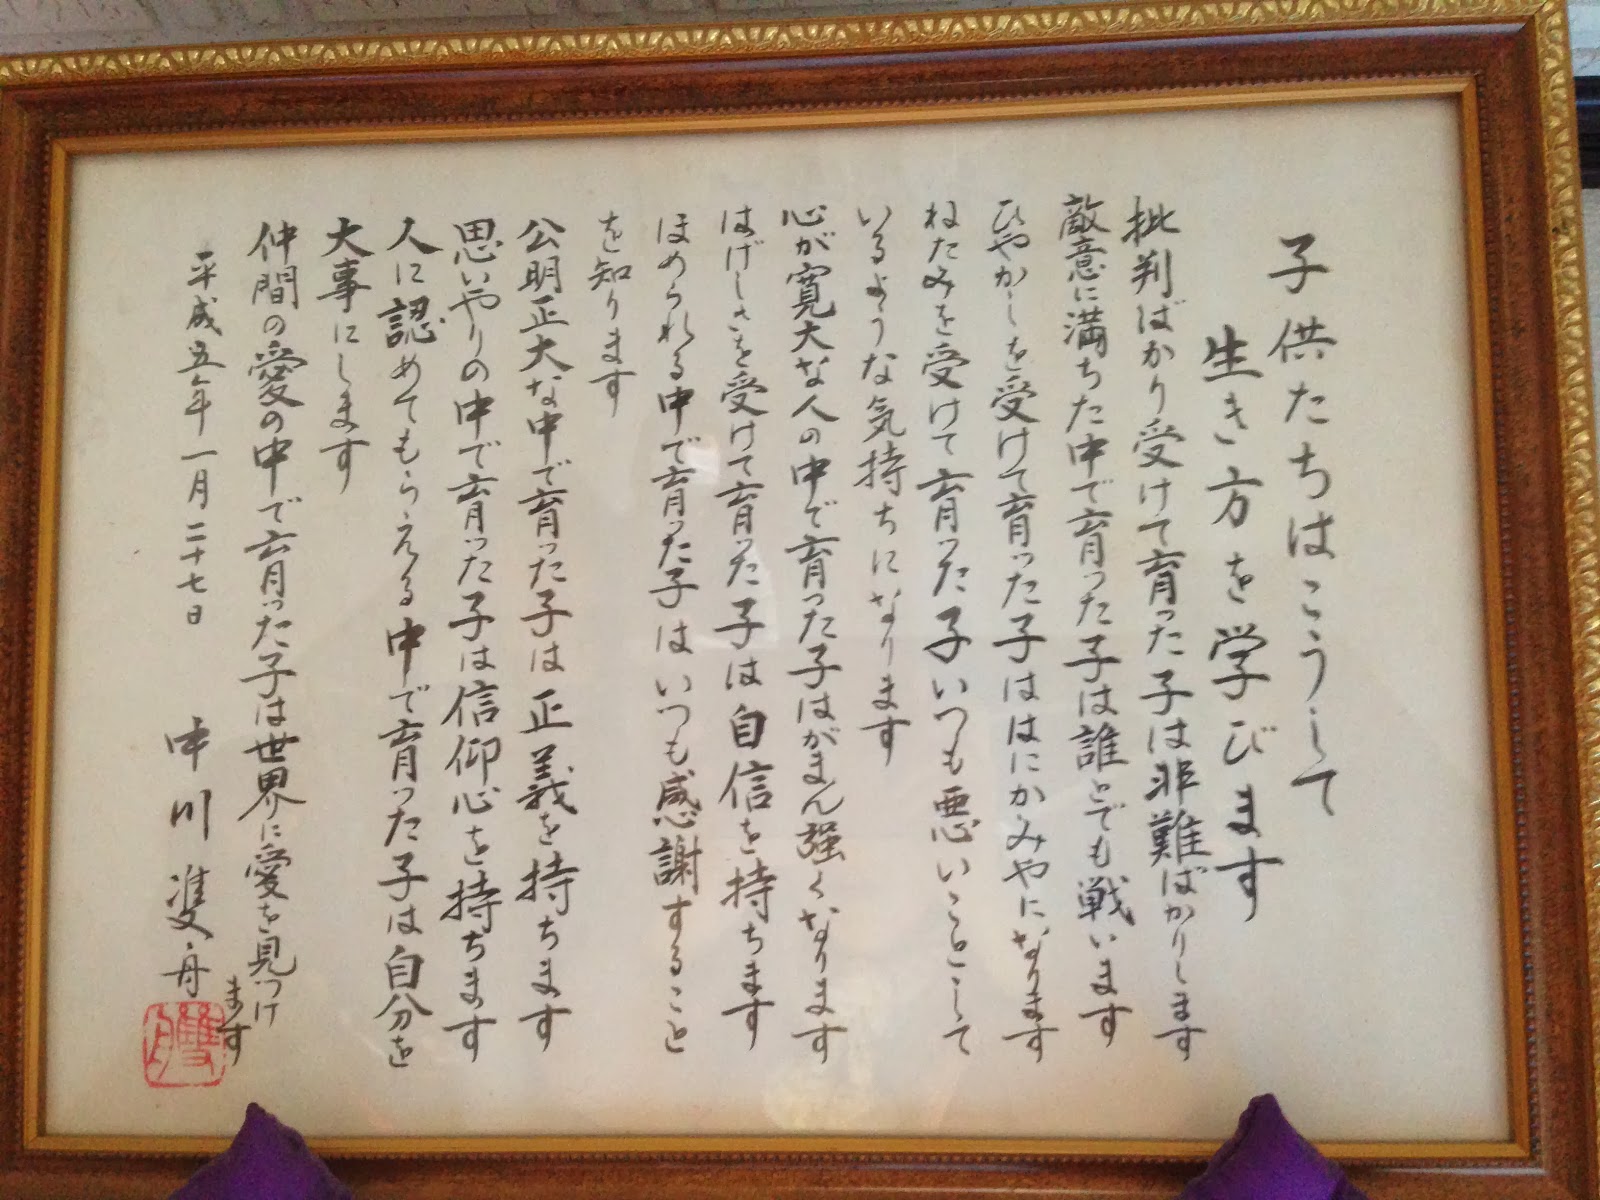 子供たちはこうして
生き方を学びます
批判ばかり受けて育った子は非難ばかりします
敵意に満ちた中で育った子は誰とでも戦います
ひやかしを受けて育った子ははにかみやになります
ねたみを受けて育った子いつも悪いことして
いるような気持ちになります
心が寛大な人の中で育った子はがまん強くなります
はげしさを受けて育った子は自信を持ちます
ほめられる中で育った子はいつも感謝すること
を知ります
公明正大な中で育った子は正義を持ちます
思いやりの中で育った子は信仰心を持ちます
人に認めてもらえる中で育った子は自分を
大事にします
仲間の愛の中で育った子は世界に愛を見つけ
ます
平成五年一月二十七日
中川 舟